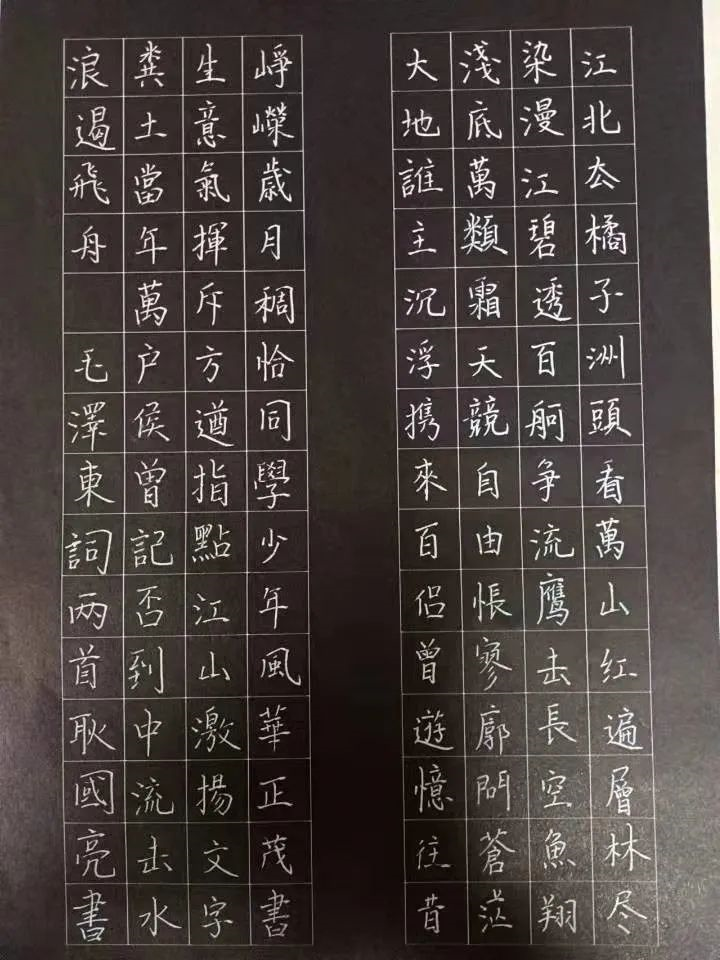 江北厺橘子洲頭看萬山红遍層林尽
染漫江碧透百舸争流鹰击長空魚翔
淺底萬類霜天競自由悵寥廓問蒼茫
大地誰主沉浮携來百侣曾遊憶往昔
峥嶸歲月稠恰同學少年風華正茂書
生意氣揮斥方遒指點江山激揚文字
糞土當年萬户侯曾記否到中流击水
浪遏飛舟 毛澤東詞两首耿國亮書